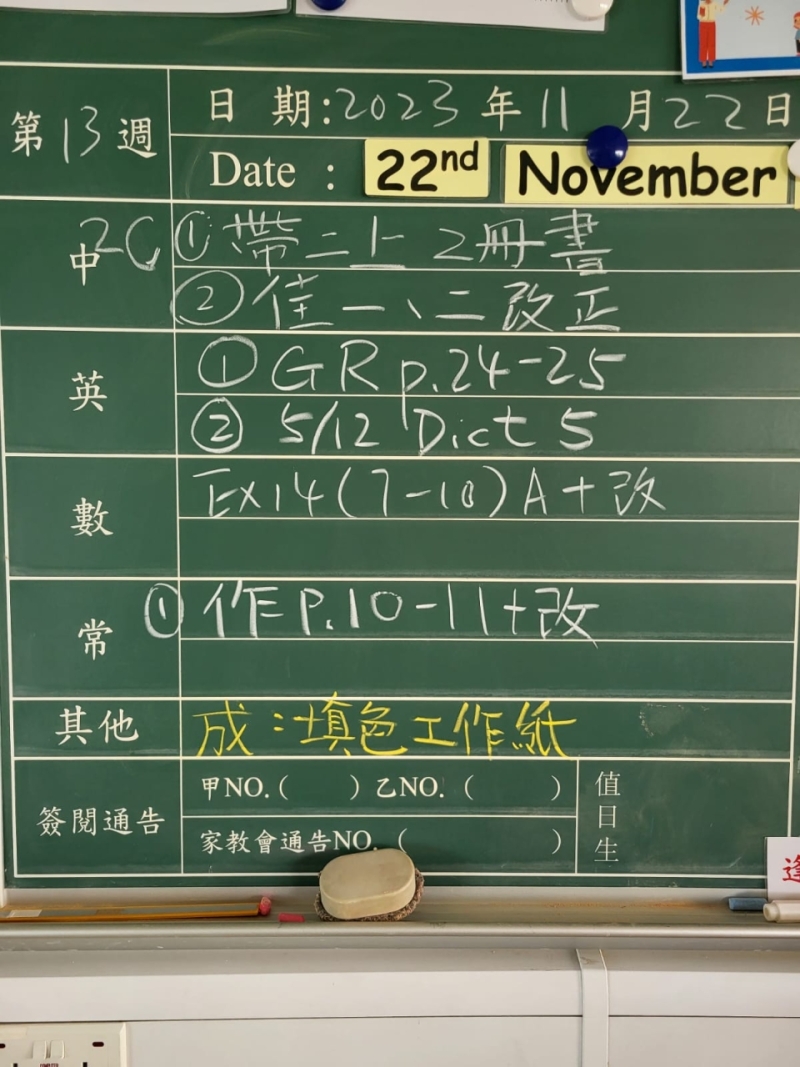 第13週
日 期:2023年11月22日
Date : 22nd November
中 2C ① 帶二上2冊書
② 佳一、二改正
英 ① GR p.24-25
② 5/12 Dict 5
數 Ex14(7-10)A+改
常 ① 作P.10-11+改
其他 成:填色工作紙
簽閱通告 甲NO.( ) 乙NO.( ) 值日生
家教會通告NO.( )
逢